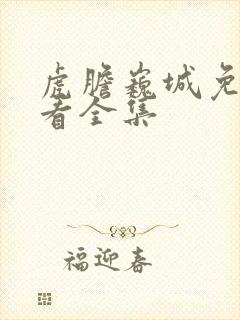 虎胆巍城免
看全集
福迎春